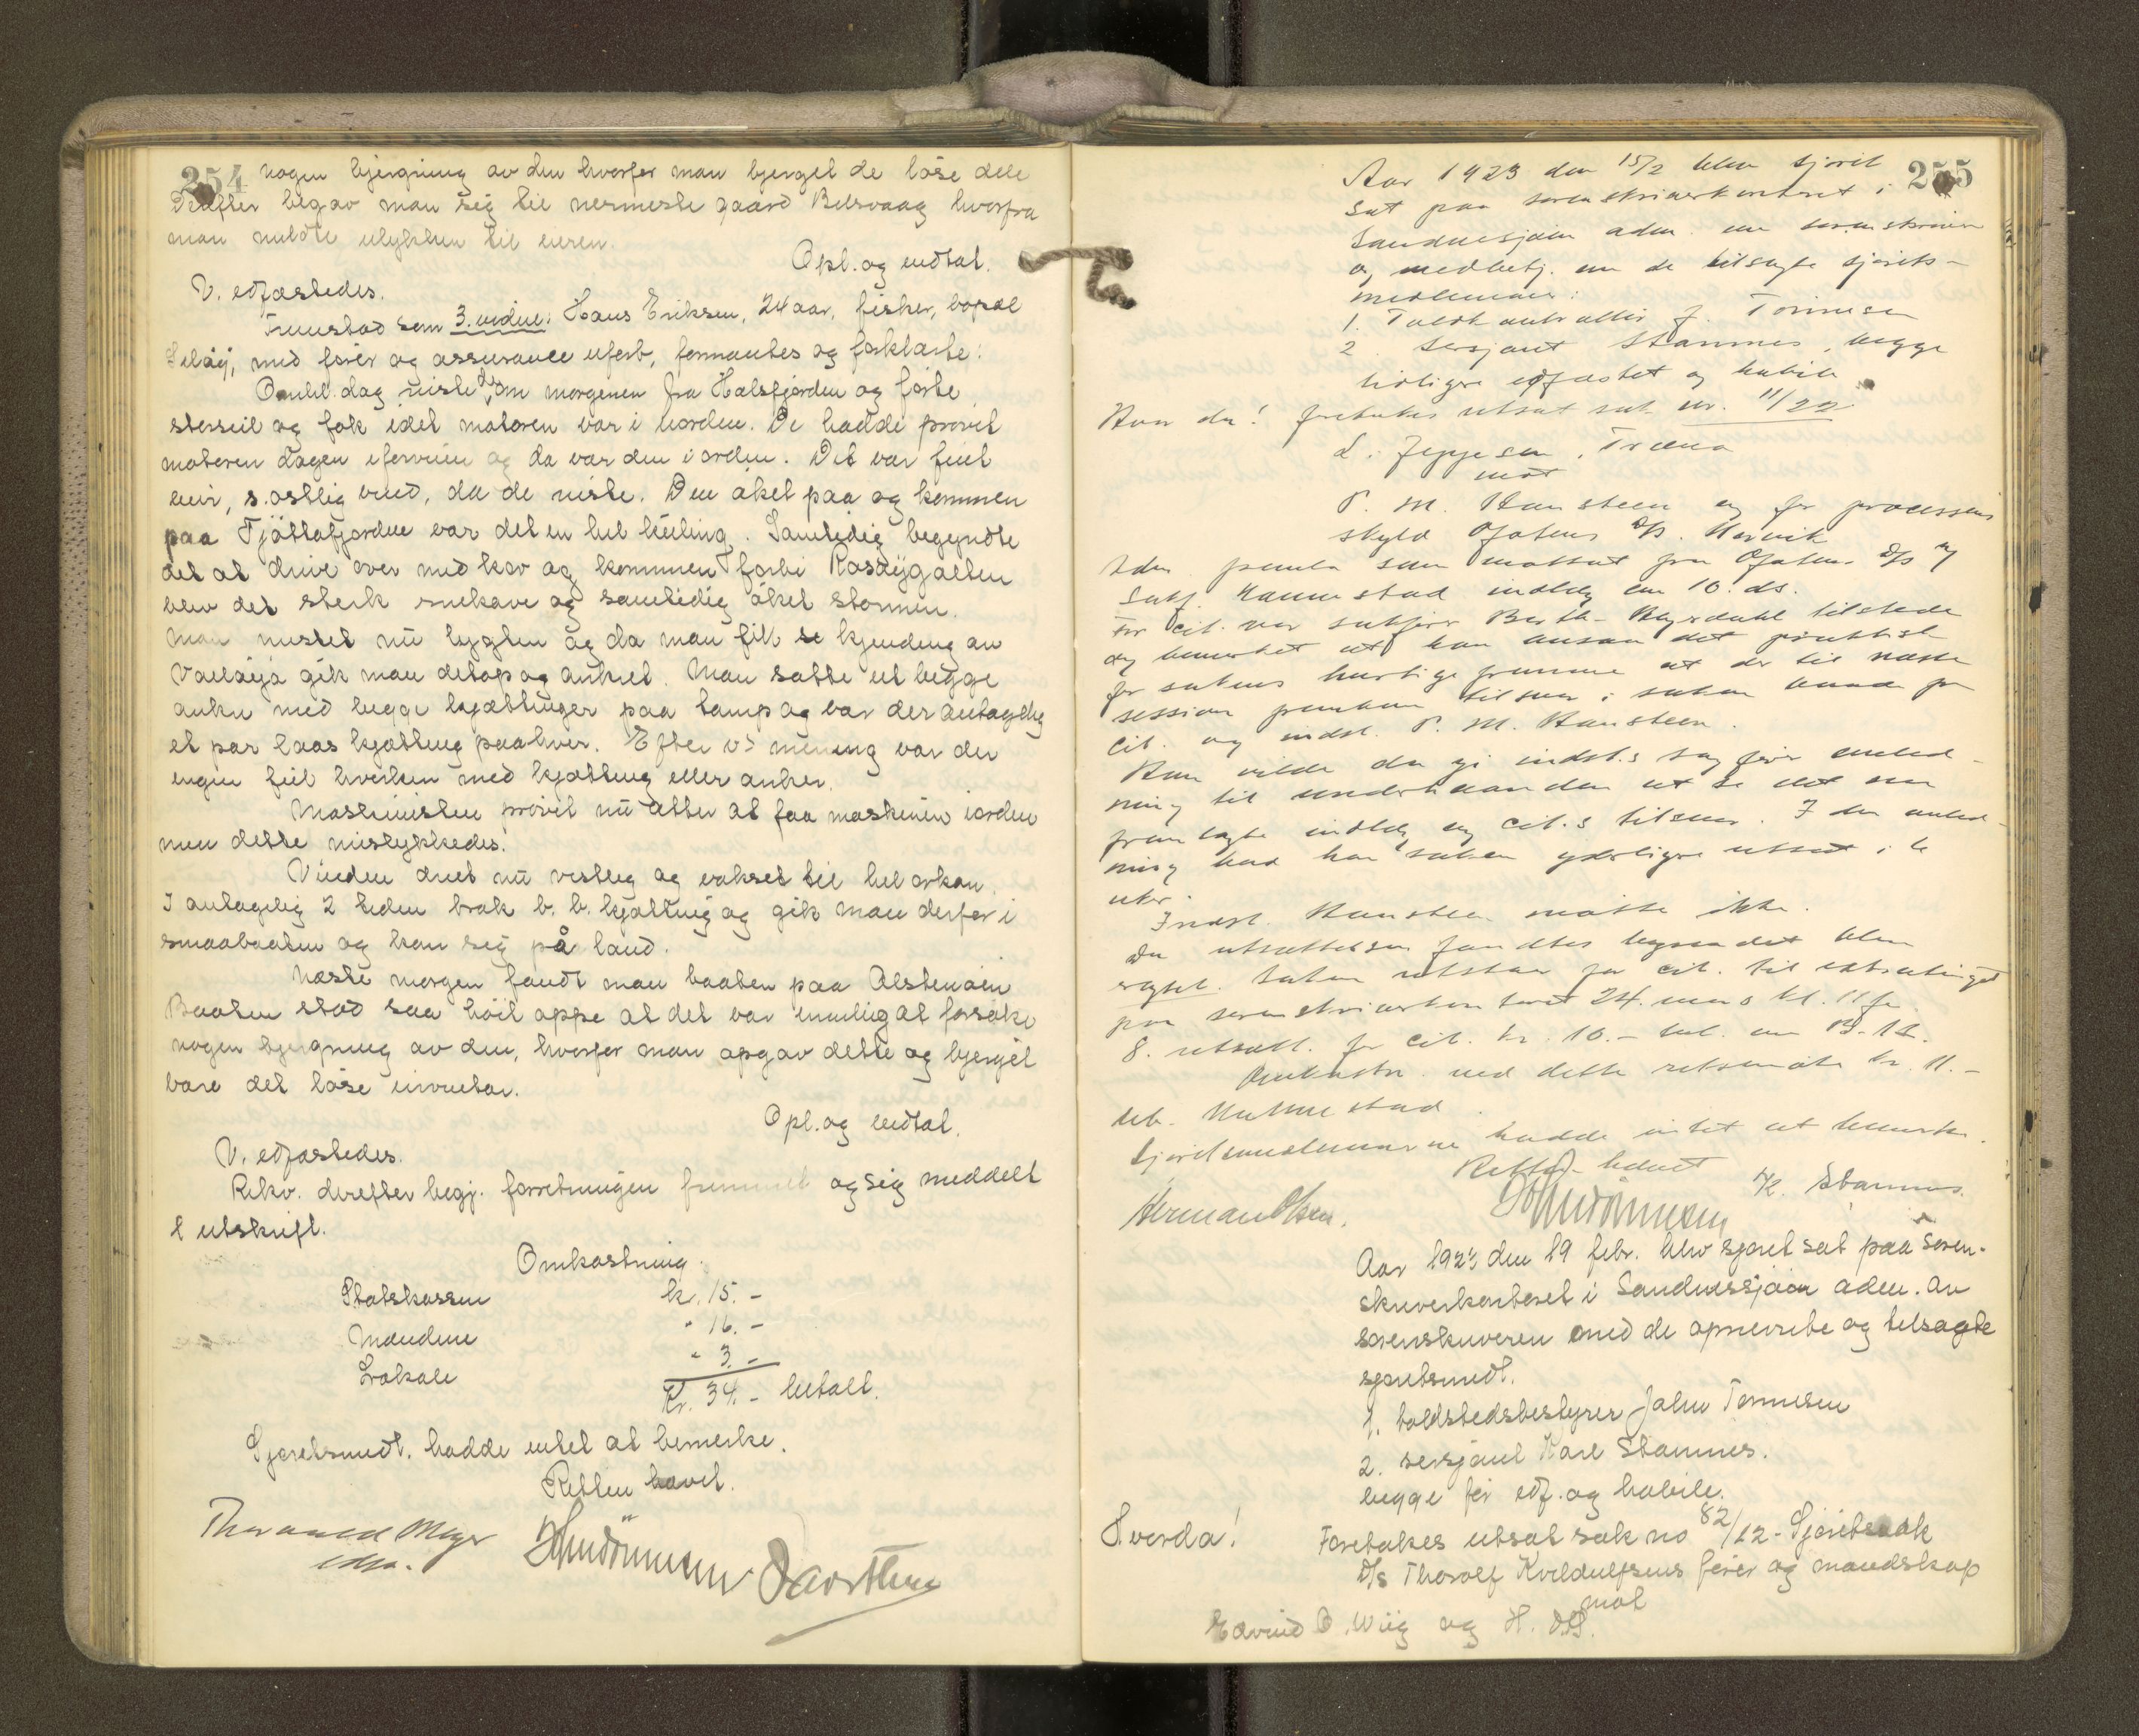 254
nogen bjergning av den hvorfor man bjerget de löse dele
Derefter begav man sig til nermeste gaard Belsvaag hvorfra
man meldte ulykken til eieren.
Opl. og vedtat.
V. edfæstedes.
Fremstod som 3. vidne: Hans Eriksen, 24 aar, fisker, bopæl
Seløy, med fører og assurance uforb, formantes og forklarte:
Omhl. dag reiste de om morgenen fra Halsfjorden og førte
storseil og fok idet motoren var i uorden. De hadde prøvet
motoren dagen iforveien og da var den i orden. Det var fint
veir, s. ostlig vind, da de reiste. Den øket paa og kommen
paa Tjøttafjorden var det en hel kuling. Samtidig begyndte
det at drive over med kov og kommen forbi Rosøygalten
blev det sterk snekave og samtidig øket stormen.
Man mistet nu lygten og da man fik se kjending av
gik man detop og ankret. Man satte ut begge
anker med begge kjættinger paa tamp og var der antagelig
et par laas kjætting paa hver. Efter v's mening var der
ingen feil hverken med kjætting eller anker.
Maskinisten prøvet nu atter at faa maskinen iorden
men dette mislykkedes.
Vinden dreiet nu vestlig og vokset til hel orkan.
I antagelig 2 tiden brak b. b. kjætting og gik man derfor i
smaabaaten og kom sig på land.
Næste morgen fandt man baaten paa Alstenøen
Baaten stod saa höit oppe at det var umulig at forsøke
nogen bjergning av den, hvorfor man opgav dette og bjerget
bare det löse inventar.
Opl. og vedtat.
V. edfæstedes.
Rekv. derefter begj. forretningen fremmet og sig meddelt
1 utskrift.
Omkostning:
Statskassen kr. 15.-
Mændene " 16.-
Lokale " 3.-
Kr. 34.- betalt.
Sjøretsmedl. hadde intet at bemerke.
Retten hævet.
Meyer
255
Aar 1923 den 15/2 blev sjøret
sat paa sorenskriverkontoret i
Sandnessjøen adm. av sorenskriver
og medbetj. av de tilsagte sjørets-
medlemmer:
1. Toldkontrollør J. Tønnesen
2. Sersjant Stamnes, begge
tidligere edfæstet og habile
Hvor da! foretokes utsat sak nr. 11/22
L. Jeppesen, Træna
mot
P. M. Hansteen og for processens
skyld Ofotens D/s. Narvik
indlæg av 10. ds.
For cit. var sakfører tilstede
og bemerket at han ansaa det praktisk
for sakens hurtige fremme at der til næste
session fremkom tilsvar i saken baade fra
cit. og indst. P. M. Hansteen.
Han vilde da gi indst.s sagfører anled-
ning til underhaanden at se det nu
fremlagte indlæg og cit.s tilsvar. I den anled-
ning bad han saken yderligere utsat i 6
uker.
Indst. Hansteen møtte ikke.
Da utsættelsen fandtes begrundet blev
Saken utstaar for cit. til extratinget
paa sorenskriverkontoret 24. mars kl. 11 fm.
S. utsætt. for cit. kr. 10.-
Omkostn. ved dette retsmøte kr. 11.-
Sjøretsmedlemmerne hadde intet at bemerke.
Retten hævet
Herman Olsen. K. Stamnes.
Aar 1923 den 19 febr. blev sjøret sat paa soren-
skriverkontoret i Sandnessjøen adm. av
sorenskriveren med de opnevnte og tilsagte
sjøretsmedl.
1. toldstedsbestyrer John Tønnesen
2. sersjant Karl Stamnes.
begge før edf. og habile.
Hvorda! Foretokes utsat sak no 82/22 - Sjøretssak
D/s Thorolf Kveldulfsens fører og mandskap
mot
Edvind O. Wiig og H. D/S.